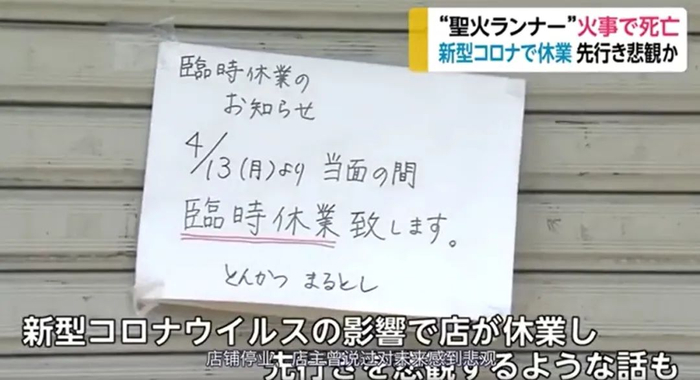 “聖火ランナー”火事で死亡
新型コロナで休業 先行き悲観か
臨時休業の
お知らせ
4/13(月)より 当面の間
臨時休業致します。
とんかつ まるとし
新型コロナウイルスの影響で店が休業し
店铺停业 店主曾说过对未来感到悲观
先行きを悲観するような話も